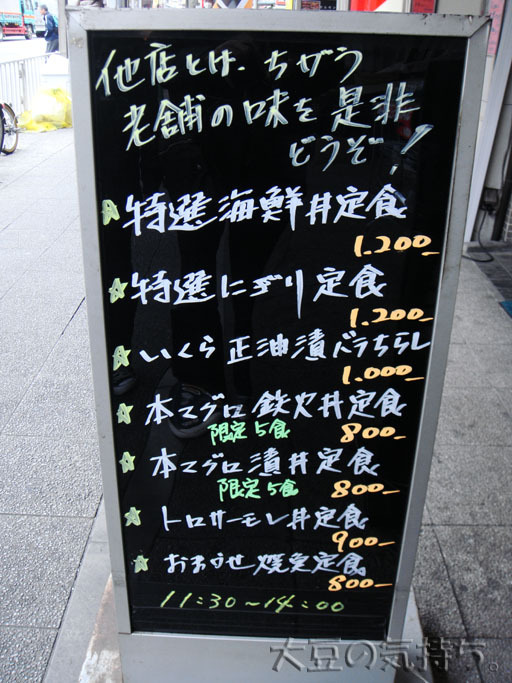 他店とは、ちがう
老舗の味を是非
どうぞ!
☆特選海鮮丼定食
1.200-
☆特選にぎり定食
1.200-
☆いくら正油漬バラちらし
1.000-
☆本マグロ鉄火丼定食
限定5食 800-
☆本マグロ漬丼定食
限定5食 800-
☆トロサーモン丼定食
900-
☆おまかせ焼魚定食
800-
11:30~14:00
大豆の気持ち。